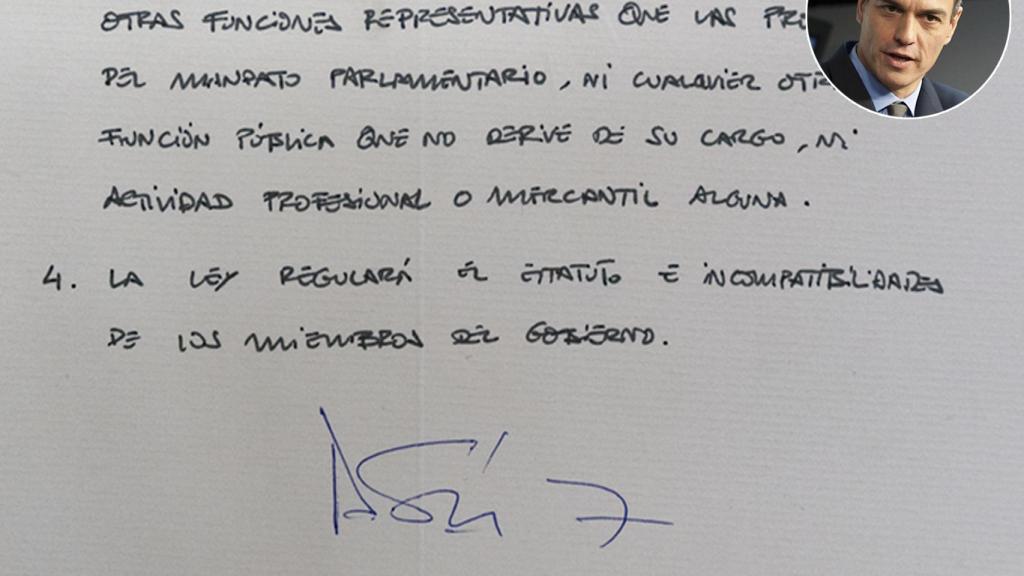 OTRAS FUNCIONES REPRESENTATIVAS QUE LAS
DEL MANDATO PARLAMENTARIO, NI CUALQUIER
FUNCIÓN PÚBLICA QUE NO DERIVE DE SU CARGO, NI
ACTIVIDAD PROFESIONAL O MERCANTIL ALGUNA.
4. LA LEY REGULARÁ EL ESTATUTO E INCOMPATIBILIDADES
DE LOS MIEMBROS DEL GOBIERNO.